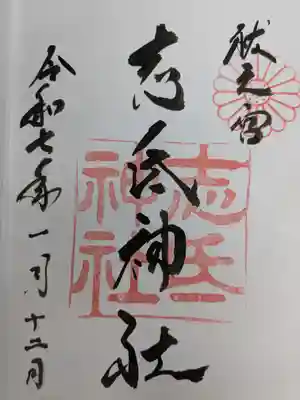 祓之宮
志氐神社
志氐
神社
令和七年一月十二日